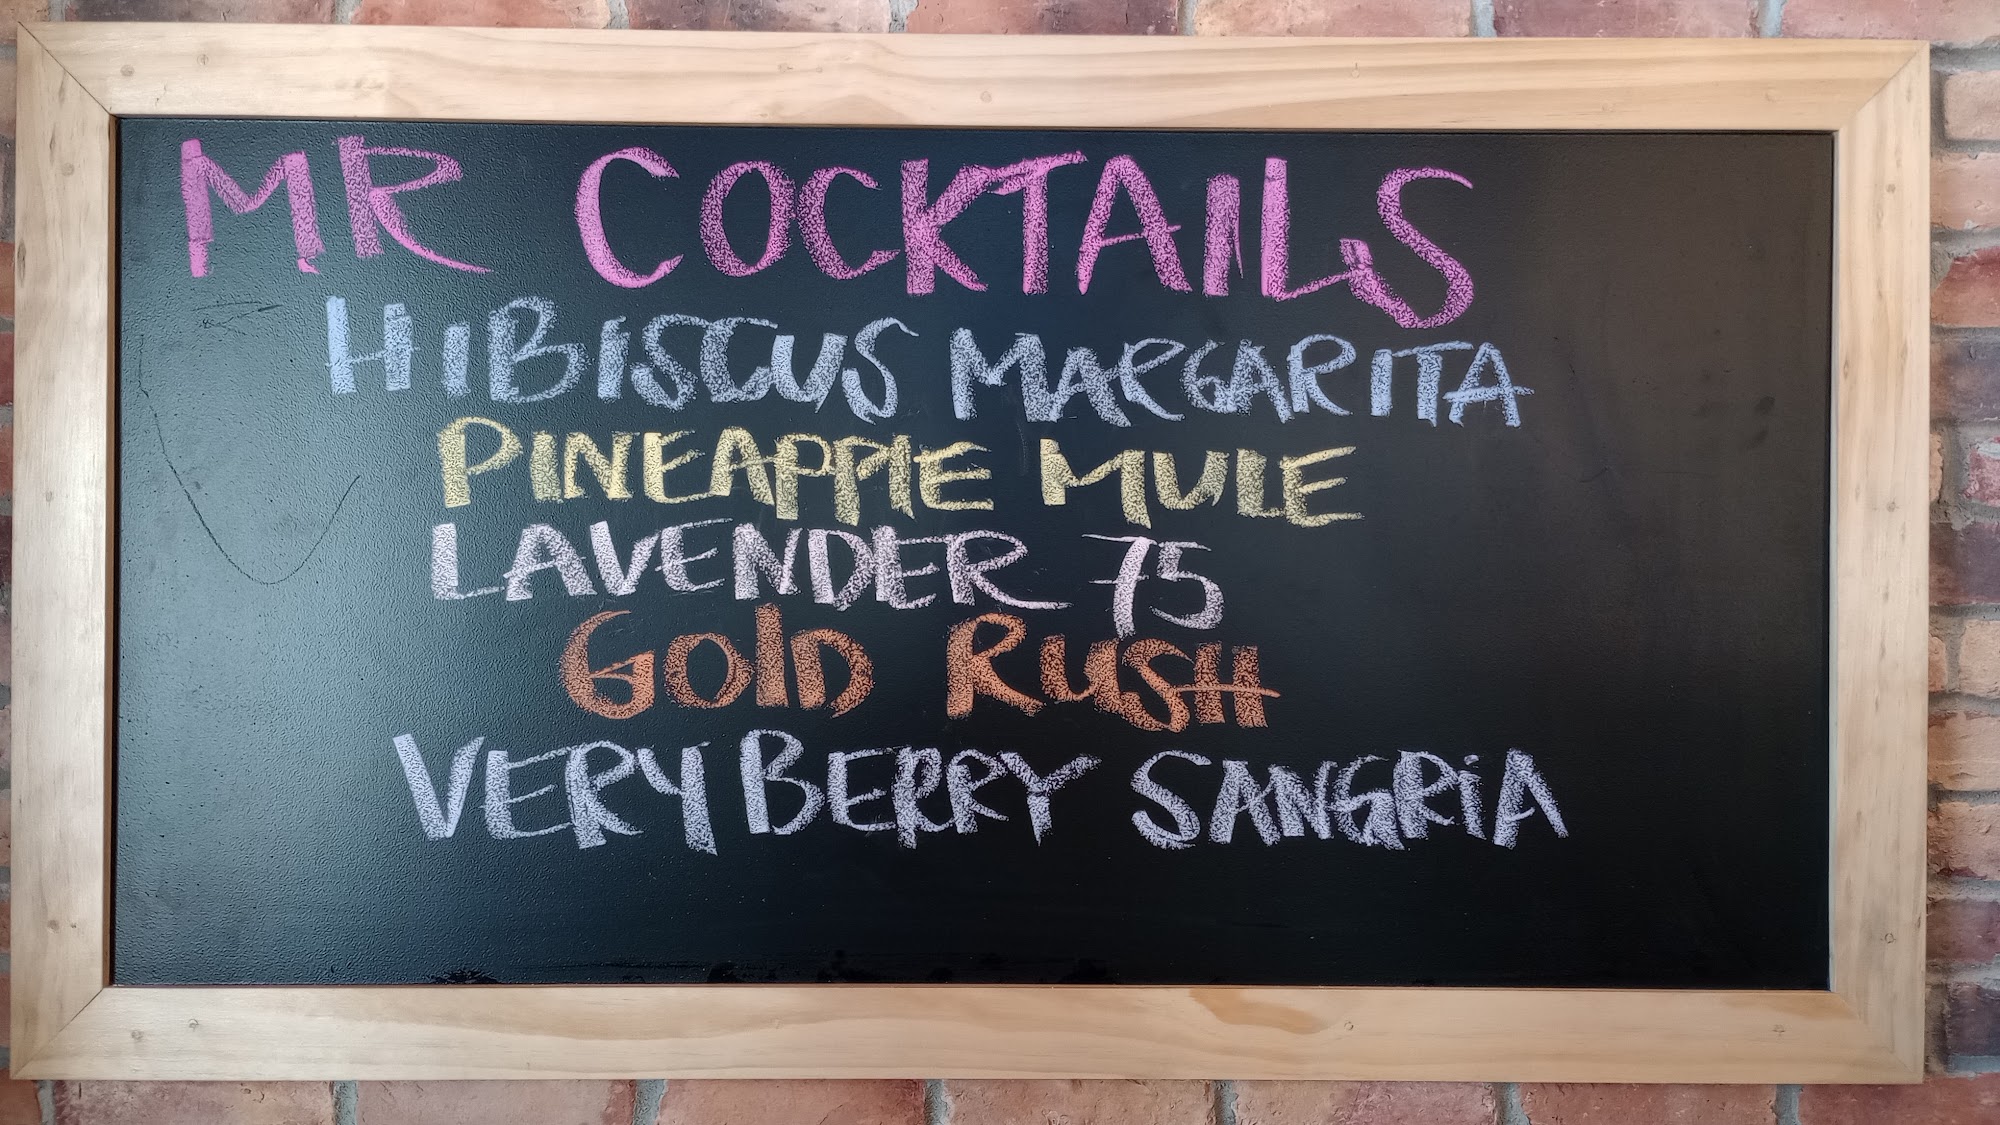 MR COCKTAILS
HIBISCUS MARGARITA
PINEAPPLE MULE
LAVENDER 75
GOLD RUSH
VERY BERRY SANGRIA